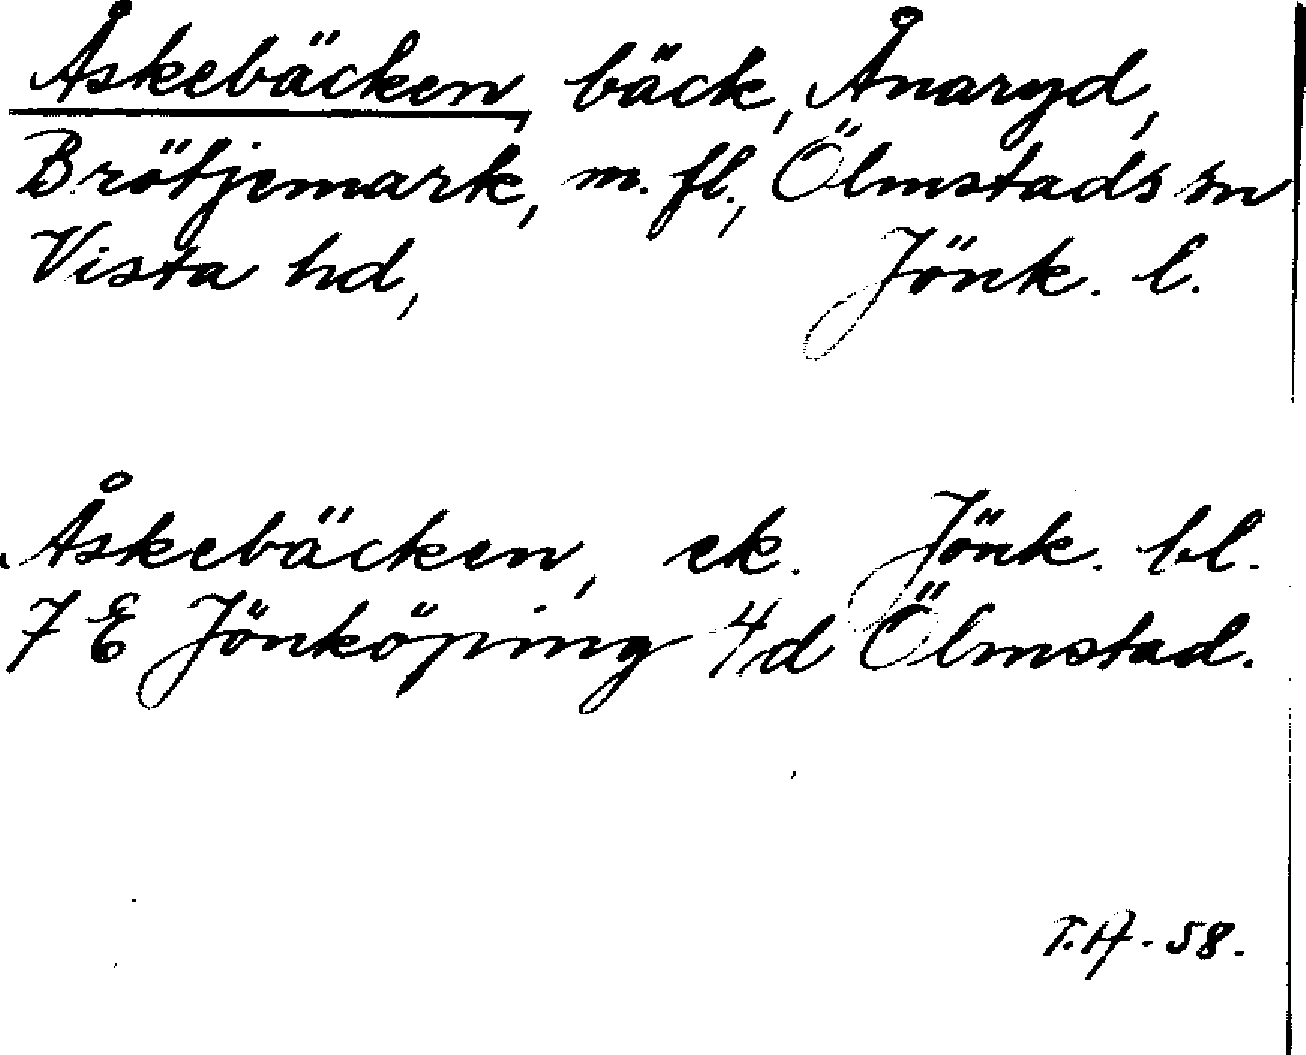 Åskebäcken, bäck, Ånaryd,
Brötjemark, m. fl., Ölmstads sn
Vista hd, Jönk. l.
Åskebäcken, ek. Jönk. bl.
7 E Jönköping 4d Ölmstad.
T.A. - 58.